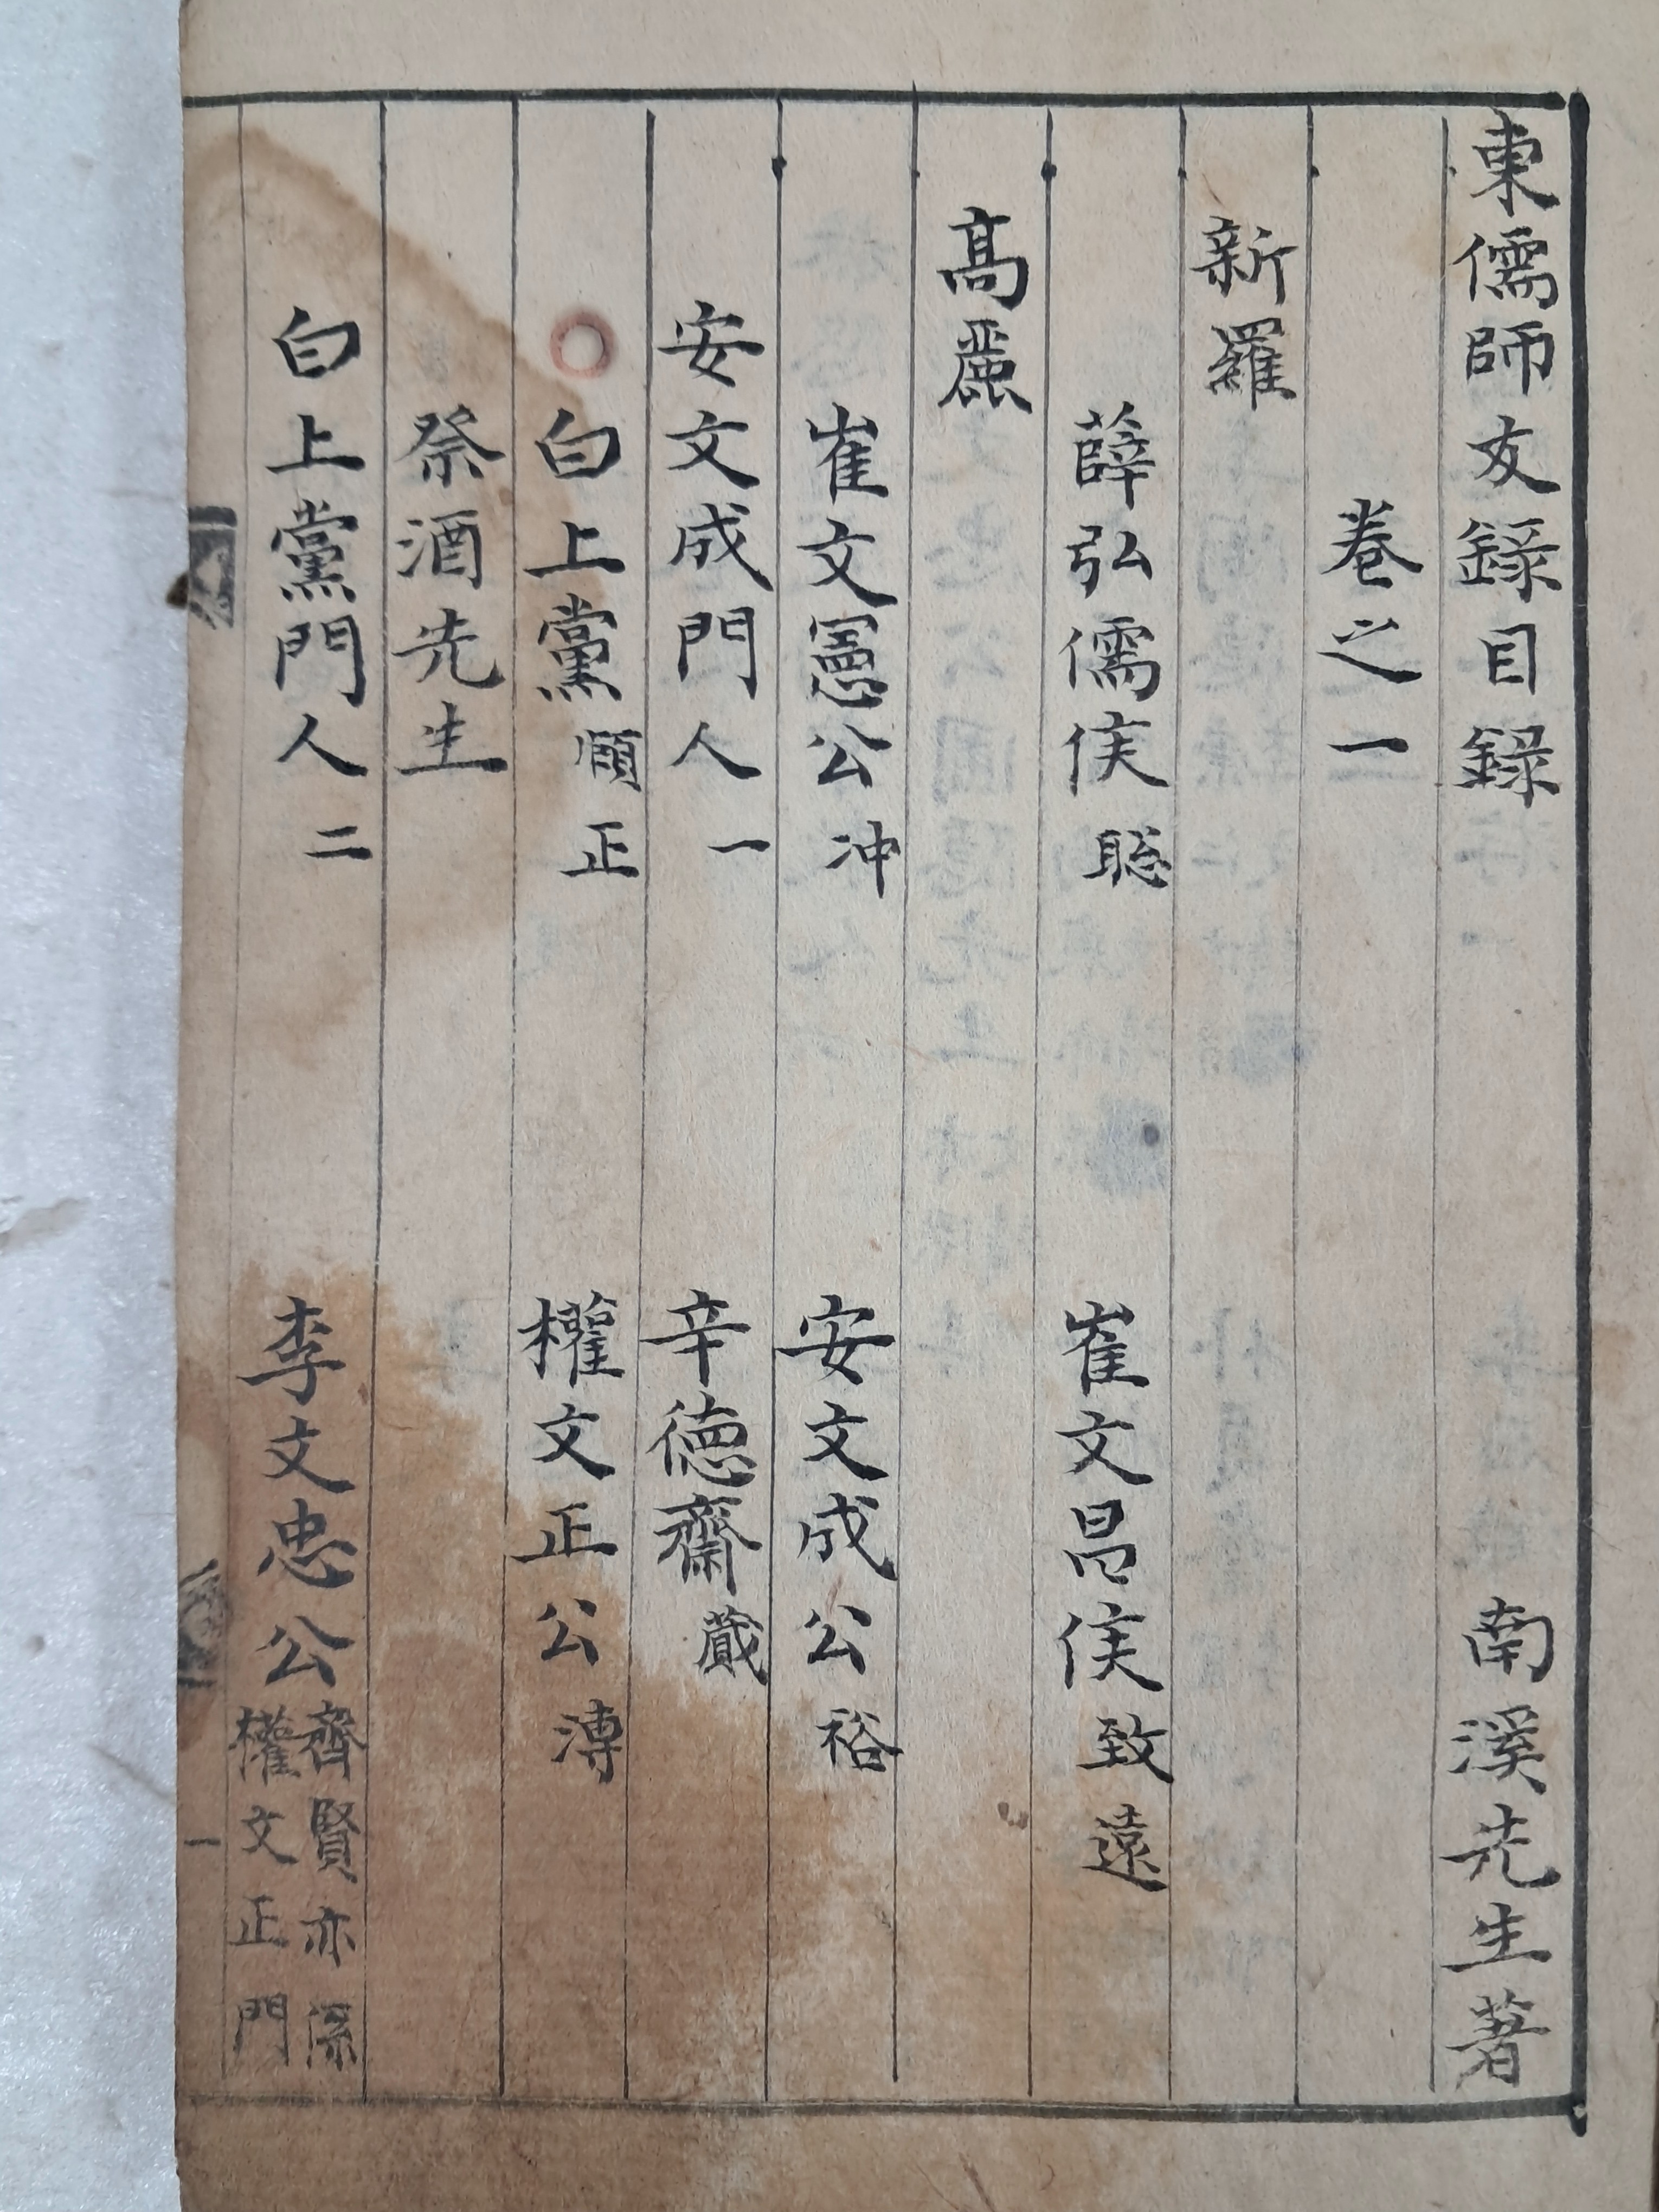 東儒師友錄目錄 南溪先生著
卷之一
新羅
薛弘儒侯聡 崔文昌侯致遠
高麗
崔文憲公冲 安文成公裕
安文成門人一 辛德齋蕆
白上黨頤正 權文正公溥
祭酒先生
白上黨門人二 李文忠公齊賢亦係權文正門
一